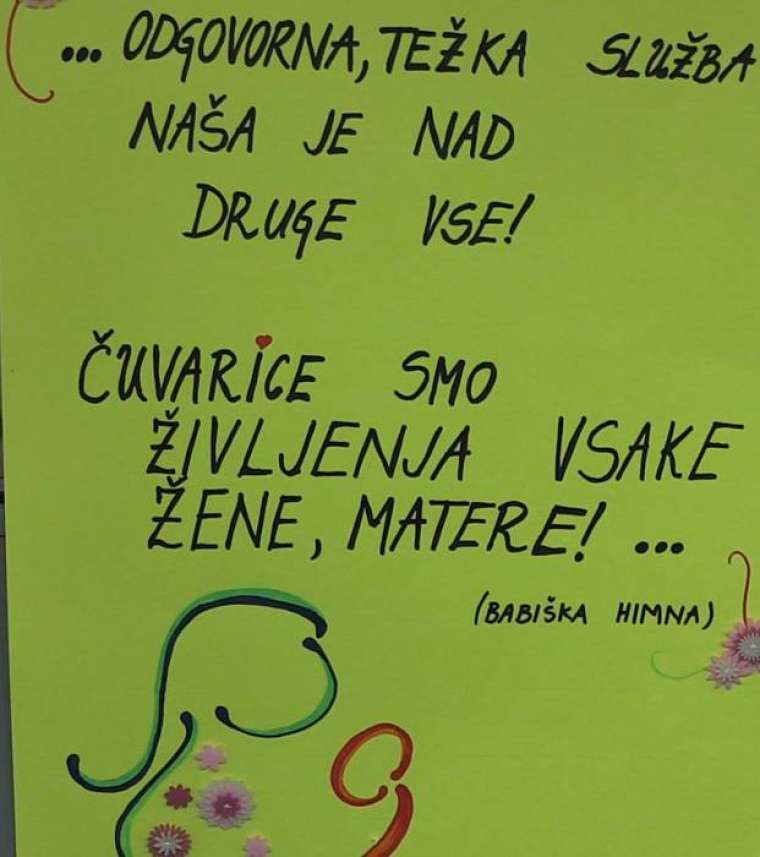 ... ODGOVORNA, TEŽKA SLUŽBA
NAŠA JE NAD
DRUGE VSE!
ČUVARICE SMO
ŽIVLJENJA VSAKE
ŽENE, MATERE! ...
(BABIŠKA HIMNA)